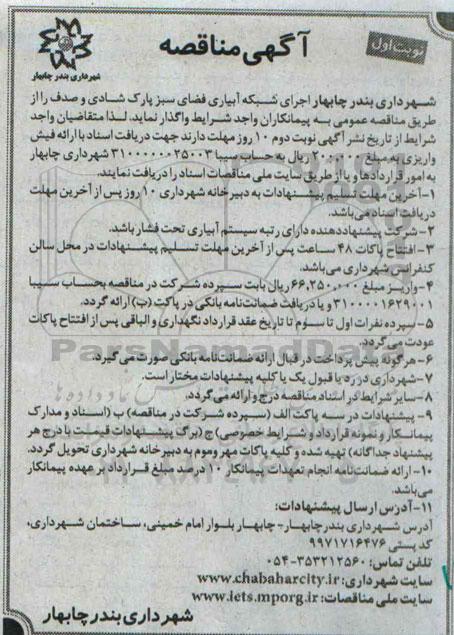 آگهی مناقصه
نوبت اول
شهرداری بندر چابهار
شهرداری بندر چابهار اجرای شبکه آبیاری فضای سبز پارک شادی و صدف را از
طریق مناقصه عمومی به پیمانکاران واجد شرایط واگذار نماید. لذا متقاضیان واجد
شرایط از تاریخ نشر آگهی نوبت دوم ۱۰ روز مهلت دارند جهت دریافت اسناد با ارائه فیش
واریزی به مبلغ ۲۰۰,۰۰۰ ریال به حساب سیبا ۳۱۰۰۰۰۰۰۲۵۰۰۳ شهرداری چابهار
به امور قراردادها و یا از طریق سایت ملی مناقصات اسناد را دریافت نمایند.
۱-آخرین مهلت تسلیم پیشنهادات به دبیرخانه شهرداری ۱۰ روز پس از آخرین مهلت
دریافت اسناد می‌باشد.
۲- شرکت پیشنهاددهنده دارای رتبه سیستم آبیاری تحت فشار باشد.
۳-افتتاح پاکات ۴۸ ساعت پس از آخرین مهلت تسلیم پیشنهادات در محل سالن
کنفرانس شهرداری می‌باشد.
۴-واریز مبلغ ۶۶,۲۵۰,۰۰۰ ریال بابت سپرده شرکت در مناقصه بحساب سیبا
۳۱۰۰۰۰۱۶۲۹۰۰۱ و یا دریافت ضمانت‌نامه بانکی در پاکت (ب) ارائه گردد.
۵- سپرده نفرات اول تا سوم تا تاریخ عقد قرارداد نگهداری و الباقی پس از افتتاح پاکات
عودت می‌گردد.
۶-هر گونه پیش پرداخت در قبال ارائه ضمانت‌نامه بانکی صورت می‌گیرد.
۷-شهرداری در رد یا قبول یک یا کلیه پیشنهادات مختار است.
۸-سایر شرایط در اسناد مناقصه درج و ارائه می‌گردد.
۹- پیشنهادات در سه پاکت الف (سپرده شرکت در مناقصه) ب (اسناد و مدارک
پیمانکار و نمونه قرارداد و شرایط خصوصی) ج (برگ پیشنهادات قیمت با درج هر
پیشنهاد جداگانه) تهیه شده و کلیه پاکات مهر و موم به دبیرخانه شهرداری تحویل گردد.
۱۰- ارائه ضمانت‌نامه انجام تعهدات پیمانکار ۱۰ درصد مبلغ قرارداد بر عهده پیمانکار
می‌باشد.
۱۱-آدرس ارسال پیشنهادات:
آدرس شهرداری بندر چابهار- چابهار بلوار امام خمینی، ساختمان شهرداری،
کد پستی ۹۹۷۱۷۱۶۴۷۶
تلفن تماس: ۳۵۳۲۱۲۵۶۰-۰۵۴
سایت شهرداری: www.chabaharcity.ir
سایت ملی مناقصات: www.iets.mporg.ir
شهرداری بندر چابهار
ParsNamadData